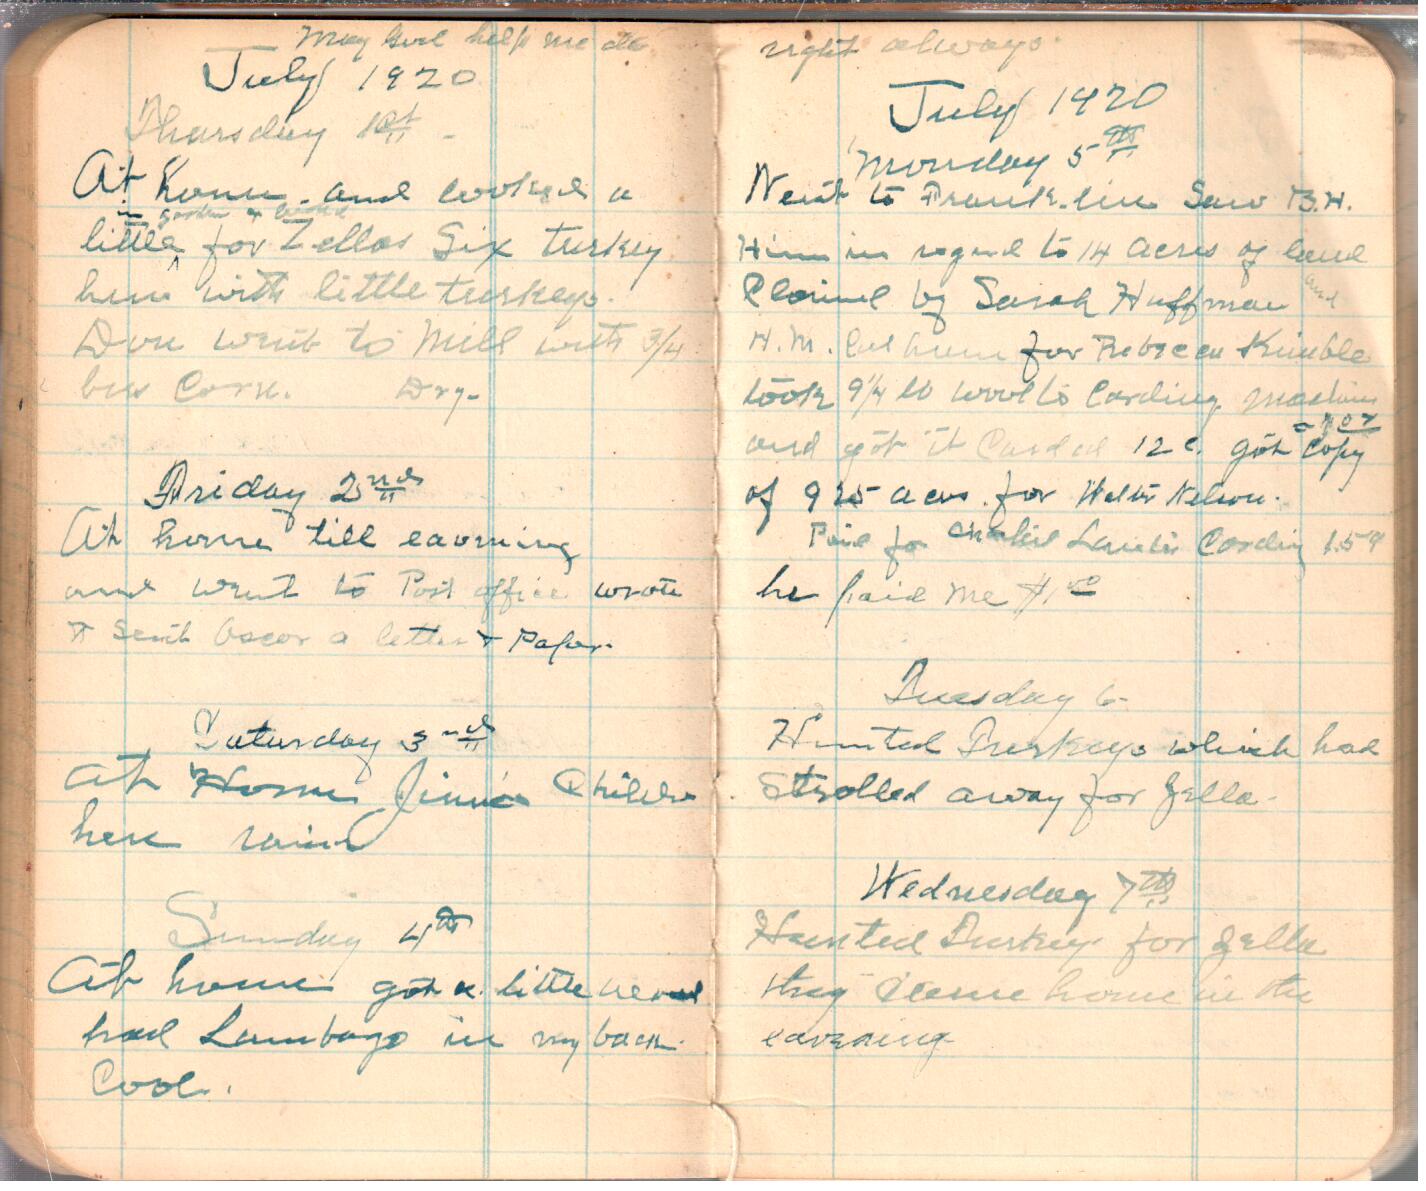 May God help me do
July 1920
Thursday 1st
At home and worked a
in garden &
little for Zellas Six turkey
hens with little turkeys.
Dow went to Mill with 3/4
bus Corn. Dry.
Friday 2nd
At home till eavning
and went to Post office wrote
& sent Oscar a letter & Paper.
Saturday 3rd
At Home Jinnie Childre
here rain
Sunday 4th
At home got a little
had Lumbago in my back.
Cool.
right always.
July 1920
Monday 5th
Went to Franklin Saw B.H.
Hiner in regard to 14 acres of land
Claimed by Sarah Huffman and
H.M. Calhoun for Rebecca Kimble
took 9 1/4 lb wool to Carding machine
and got it Carded 12 c. got a copy
of 925 acres for Walter Nelson.
Paid for Charlie Carding 1.59
he paid me $1.00
Tuesday 6
Hunted Turkeys which had
Strolled away for Zella.
Wednesday 7th
Hunted Turkeys for Zella
they came home in the
eavening